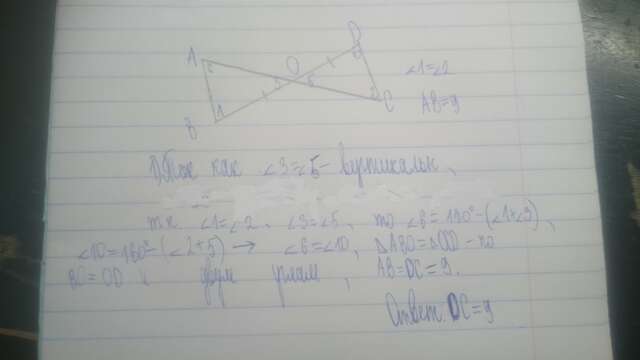 A
D
O
B
1
C
∠1=∠2
AB=9
1) Так как ∠3=∠5 - вертикальн,
т.к ∠1=∠2, ∠3=∠5, то ∠6=180°-(∠1+∠3),
∠10=180°-(∠2+5) → ∠6=∠10, ΔABO=ΔCOD - по
BO=OD и двум углам, AB=DC=9.
Ответ: DC=9